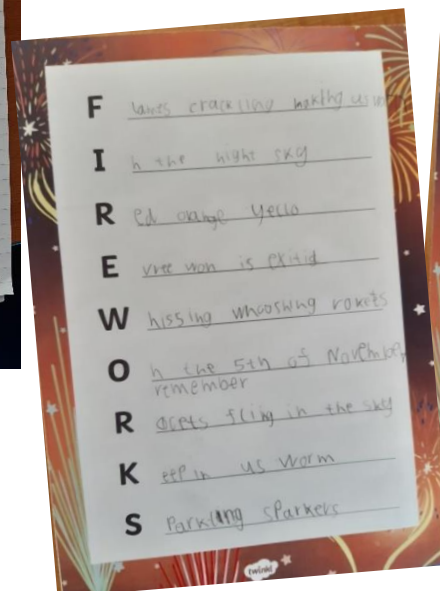 F lames crackling making us wo
I n the night sky
R ed orange yello
E vree won is exitid
W hissing whooshing rokets
O n the 5th of November
remember
R ocets fling in the sky
K eepin us worm
S Parkling sparkers
twinkl